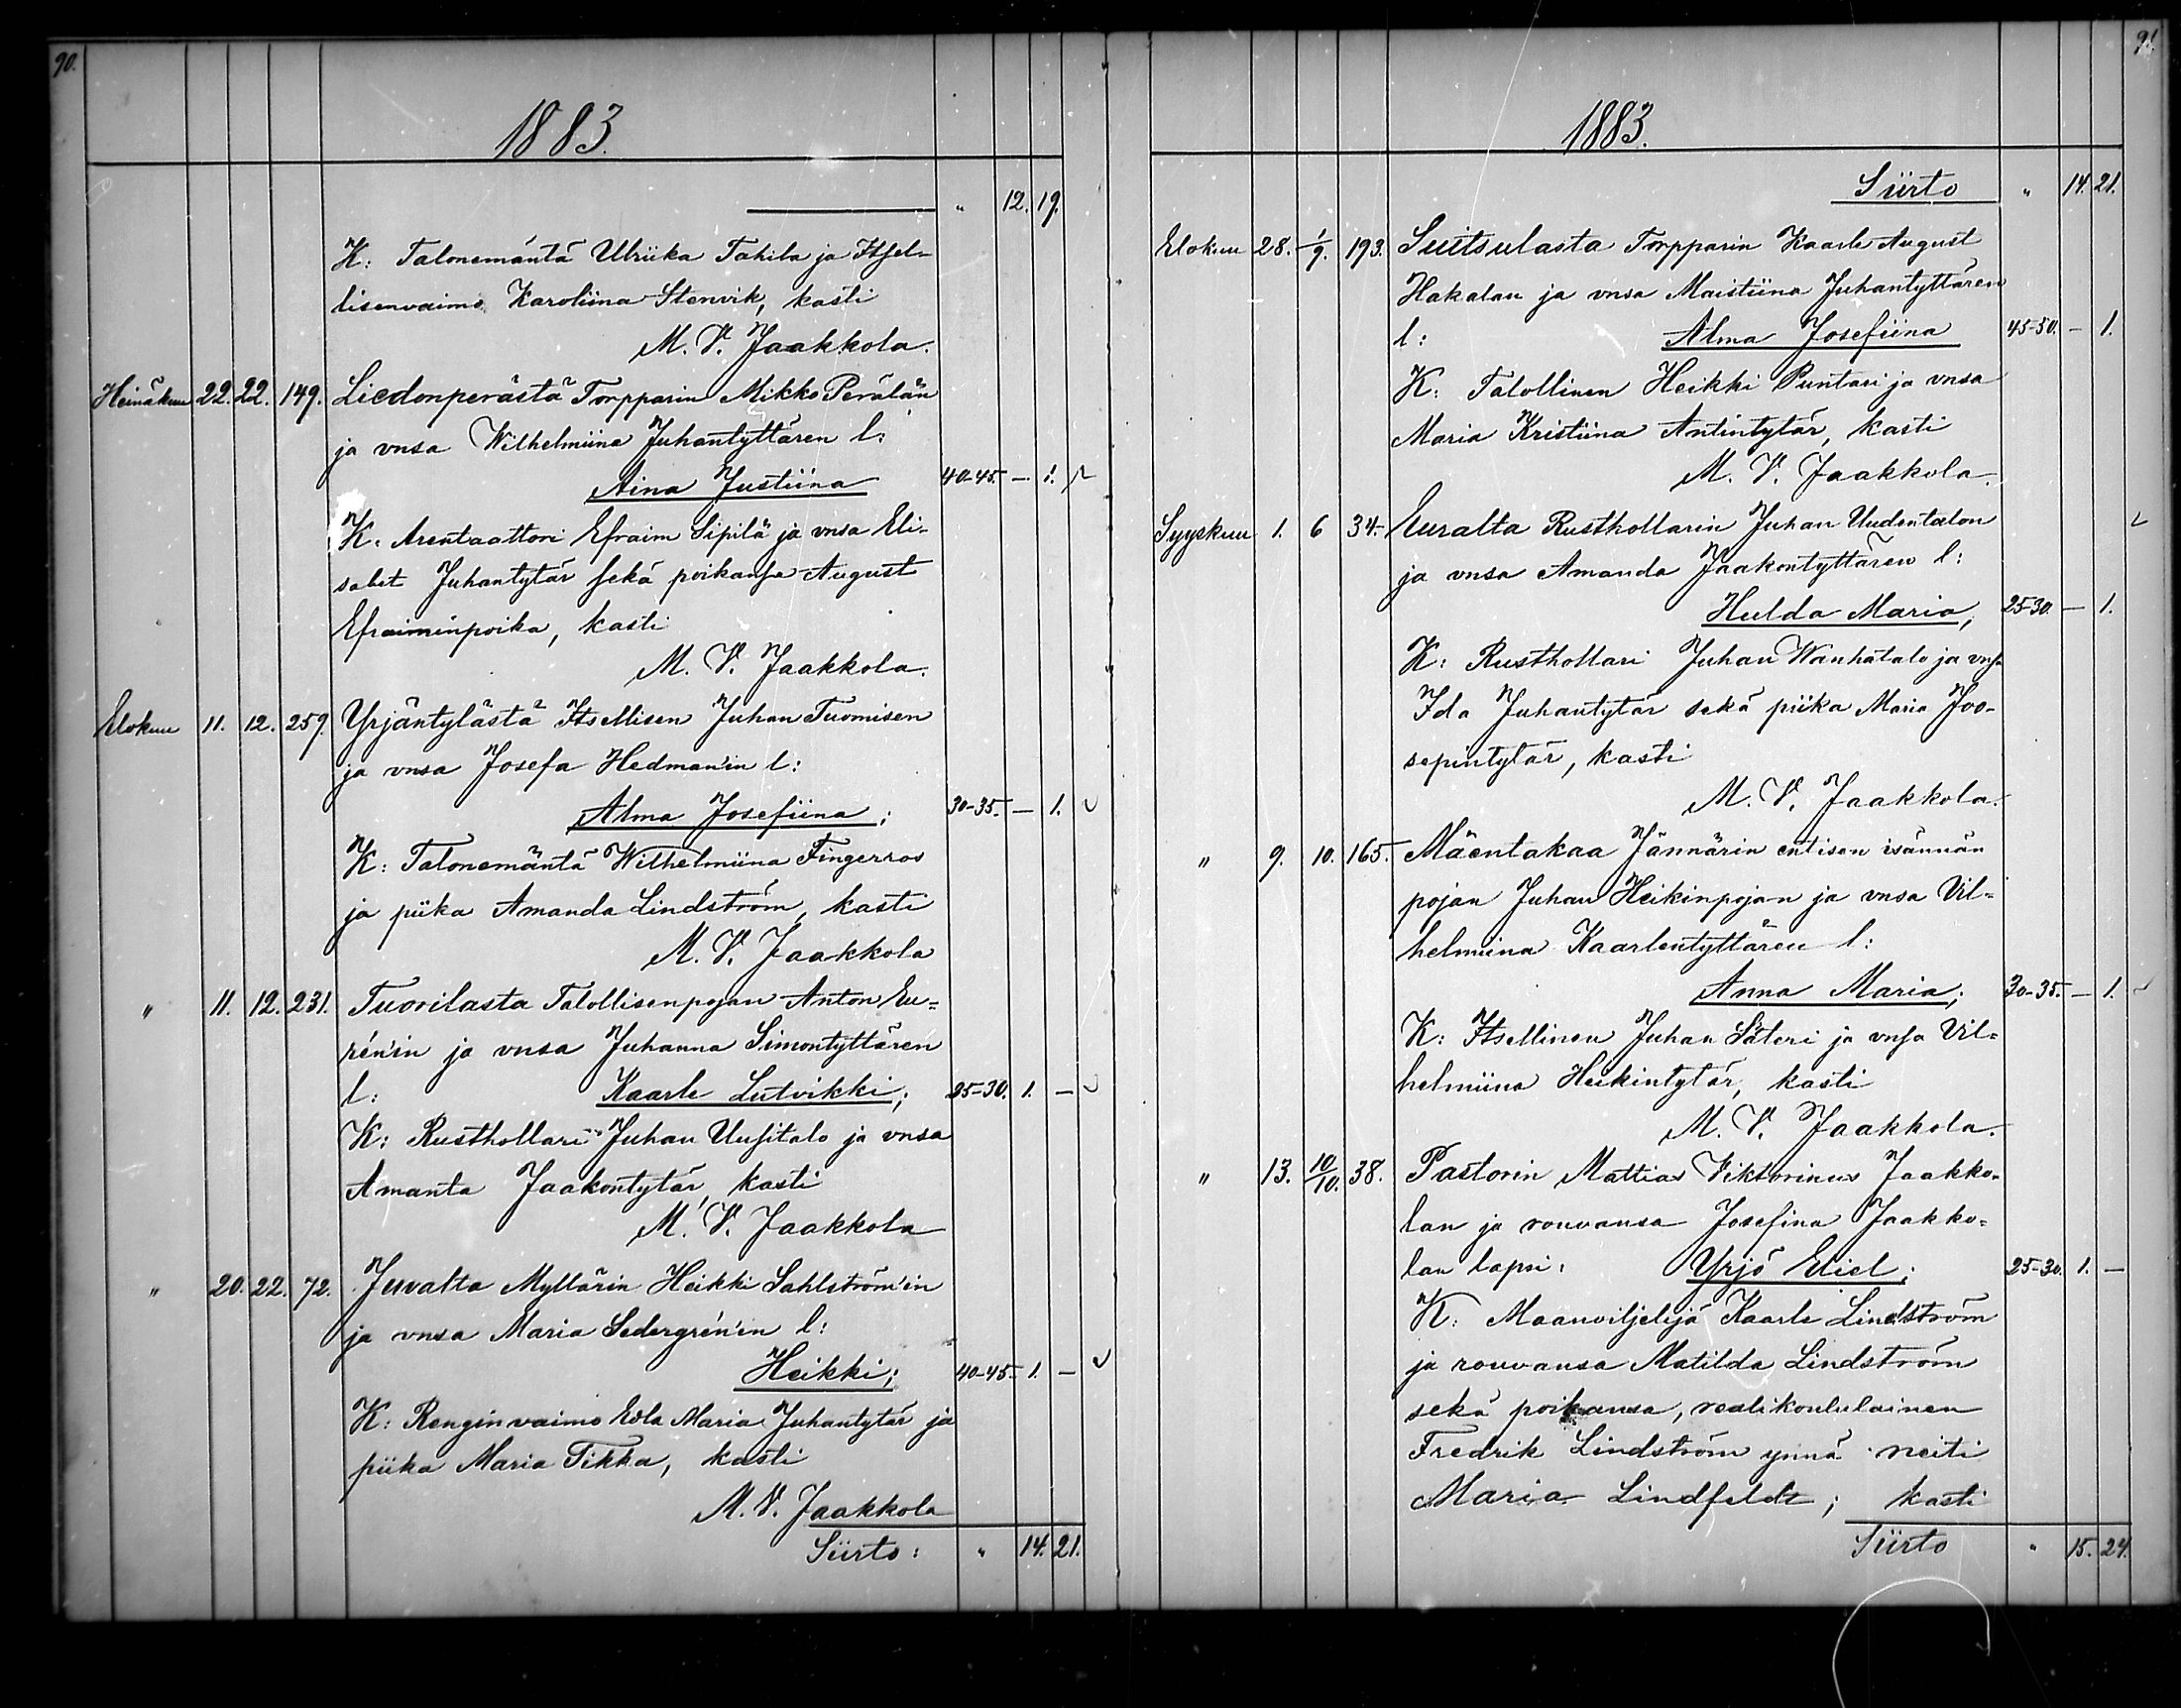 90.
1883.
" 12. 19.
K: Talonemäntä Ulriika Tahila ja Itsel-
lisenvaimo Karoliina Stenvik, kasti
M. V. Jaakkola.
Heinäkuu 22. 22. 149. Liedonperästä Torpparin Mikko Perälän
ja vnsa Wilhelmiina Juhantyttären l:
Aina Justiina 40-45. - 1.
K: Arentaattori Efraim Sipilä ja vnsa Eli-
sabet Juhantytär sekä poikansa August
Efraiminpoika, kasti
M. V. Jaakkola.
Elokuu 11. 12. 259. Yrjäntylästä Itsellisen Juhan Tuomisen
ja vnsa Josefa Hedman'in l:
Alma Josefiina; 30-35. - 1.
K: Talonemäntä Wilhelmiina Fingerroos
ja piika Amanda Lindström, kasti
M. V. Jaakkola
" 11. 12. 231. Tuorilasta Talollisenpojan Anton Eu=
rén'in ja vnsa Juhanna Simontyttären
l: Kaarle Lutvikki; 25-30. 1. -
K: Rusthollari Juhan Uusitalo ja vnsa
Amanta Jaakontytär, kasti
M. V. Jaakkola
" 20. 22. 72. Juvalta Myllärin Heikki Sahlström'in
ja vnsa Maria Sedergrén'in l:
Heikki; 40-45- 1. -
K: Renginvaimo Eeva Maria Juhantytär ja
piika Maria Tikka, kasti
M. V. Jaakkola
Siirto: " 14. 21.
91.
1883.
Siirto " 14. 21.
Elokuu 28. 1/9. 193. Suitsulasta Torpparin Kaarle August
Hakalan ja vnsa Maistiina Juhantyttären
l: Alma Josefiina 45-50. - 1.
K: Talollinen Heikki Puntari ja vnsa
Maria Kristiina Antintytär, kasti
M. V. Jaakkola.
Syyskuu 1. 6 34. Euralta Rusthollarin Juhan Uudentalon
ja vnsa Amanda Jaakontyttären l:
Hulda Maria; 25-30. - 1.
K: Rusthollari Juhan Wanhatalo ja vnsa
Ida Juhantytär sekä piika Maria Joo-
sepintytär, kasti
M. V. Jaakkola.
" 9. 10. 165. Mäentakaa Jännärin entisen isännän
pojan Juhan Heikinpojan ja vnsa Vil=
helmiina Kaarlentyttären l:
Anna Maria; 30-35. - 1.
K: Itsellinen Juhan Säteri ja vnsa Vil=
helmiina Heikintytär, kasti
M. V. Jaakkola.
" 13. 10/10. 38. Pastorin Mattias Viktorinus Jaakko-
lan ja rouvansa Josefina Jaakko=
lan lapsi: Yrjö Eliel; 25-30. 1. -
K: Maanviljelijä Kaarle Lindström
ja rouvansa Matilda Lindström
sekä poikansa, realikoululainen
Fredrik Lindström ynnä neiti
Maria Lindfeldt; kasti
Siirto " 15. 24.